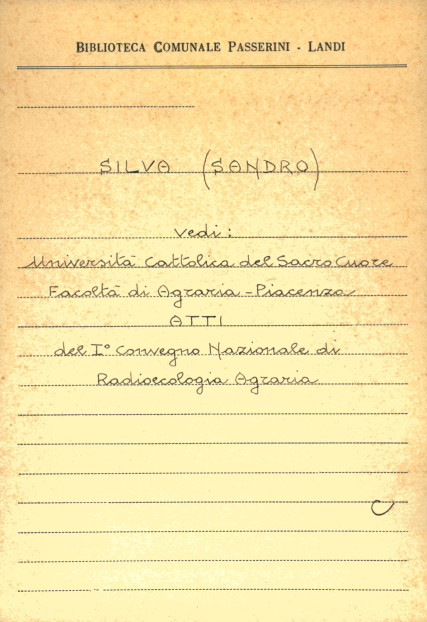 BIBLIOTECA COMUNALE PASSERINI - LANDI
SILVA (SANDRO)
vedi:
Università Cattolica del Sacro Cuore
Facoltà di Agraria - Piacenza
ATTI
del I° Convegno Nazionale di
Radioecologia Agraria
C